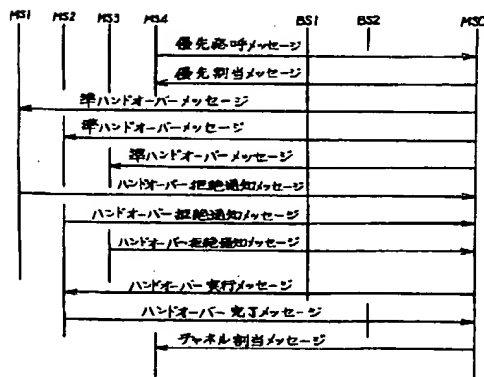 MS1 MS2 MS3 MS4 BS1 BS2 MSC
優先発呼メッセージ
優先割当メッセージ
準ハンドオーバーメッセージ
準ハンドオーバーメッセージ
準ハンドオーバーメッセージ
ハンドオーバー拒絶通知メッセージ
ハンドオーバー拒絶通知メッセージ
ハンドオーバー拒絶通知メッセージ
ハンドオーバー実行メッセージ
ハンドオーバー完了メッセージ
チャネル割当メッセージ